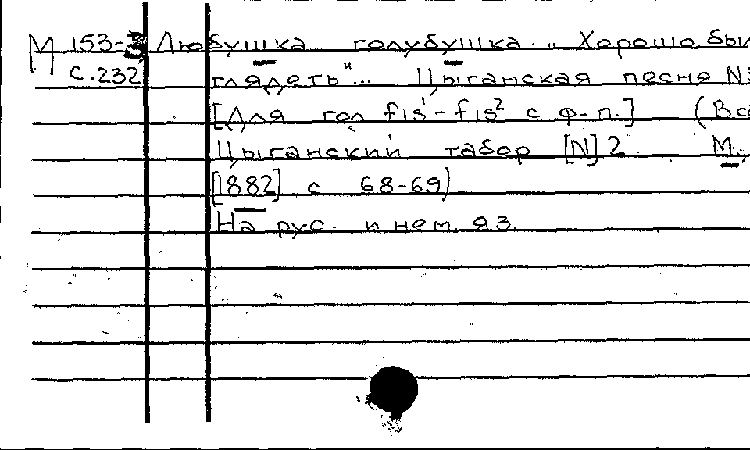 М 153-3 Любушка голубушка „Хорошо был
с. 232 глядеть"... Цыганская песня N3
[Для гол fis¹-fis² с ф-п.] (Вс
Цыганский табор [N] 2 М.,
[1882] с 68-69)
На рус. и нем. яз.